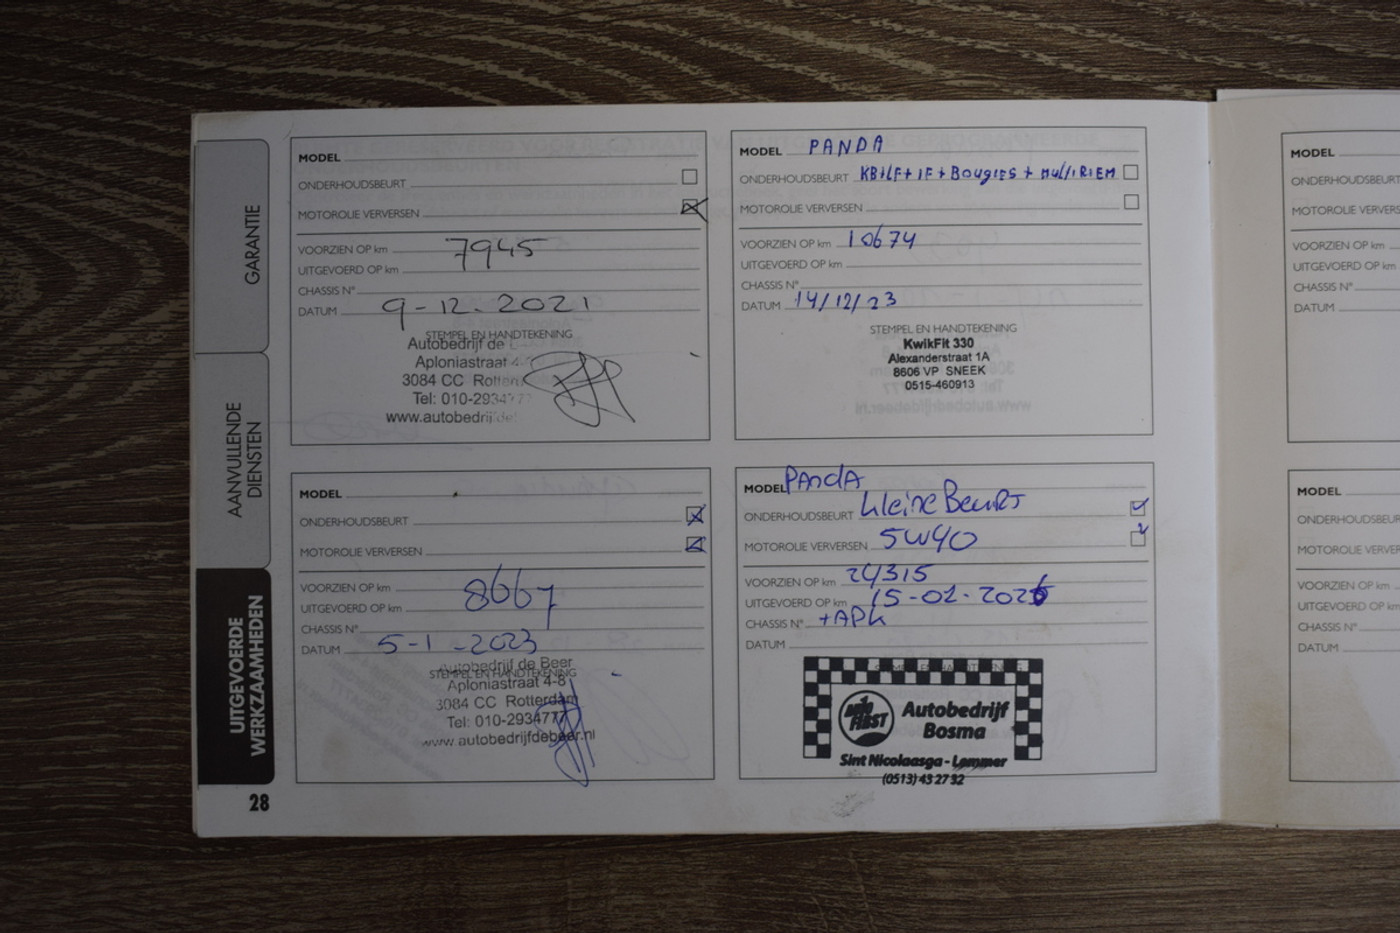 GARANTIE
AANVULLENDE
DIENSTEN
UITGEVOERDE
WERKZAAMHEDEN
28
MODEL
ONDERHOUDSBEURT
MOTOROLIE VERVERSEN
VOORZIEN OP km 7945
UITGEVOERD OP km
CHASSIS N°
DATUM 9-12-2021
STEMPEL EN HANDTEKENING
Autobedrijf de
Aploniastraat 4-
3084 CC Rotter
Tel: 010-2934777
www.autobedrijfde
MODEL
ONDERHOUDSBEURT
MOTOROLIE VERVERSEN
VOORZIEN OP km
UITGEVOERD OP km 8667
CHASSIS N°
DATUM 5-1-2023
STEMPEL EN HANDTEKENING
Autobedrijf de Beer
Aploniastraat 4-8
3084 CC Rotterdam
Tel: 010-2934777
www.autobedrijfdebeer.nl
MODEL PANDA
ONDERHOUDSBEURT KB+LF+IF+BOUGIES+MULTIRIEM
MOTOROLIE VERVERSEN
VOORZIEN OP km 10674
UITGEVOERD OP km
CHASSIS N°
DATUM 14/12/23
STEMPEL EN HANDTEKENING
KwikFit 330
Alexanderstraat 1A
8606 VP SNEEK
0515-460913
MODEL PANDA
ONDERHOUDSBEURT Kleine Beurt
MOTOROLIE VERVERSEN 5W40
VOORZIEN OP km 24315
UITGEVOERD OP km 15-02-2026
CHASSIS N° +APK
DATUM
STEMPEL EN HANDTEKENING
Autobedrijf
Bosma
Sint Nicolaasga - Lemmer
(0513) 43 27 32
MODEL
ONDERHOUDSBEURT
MOTOROLIE VERVERS
VOORZIEN OP km
UITGEVOERD OP km
CHASSIS N°
DATUM
MODEL
ONDERHOUDSBEUR
MOTOROLIE VERVER
VOORZIEN OP km
UITGEVOERD OP km
CHASSIS N°
DATUM